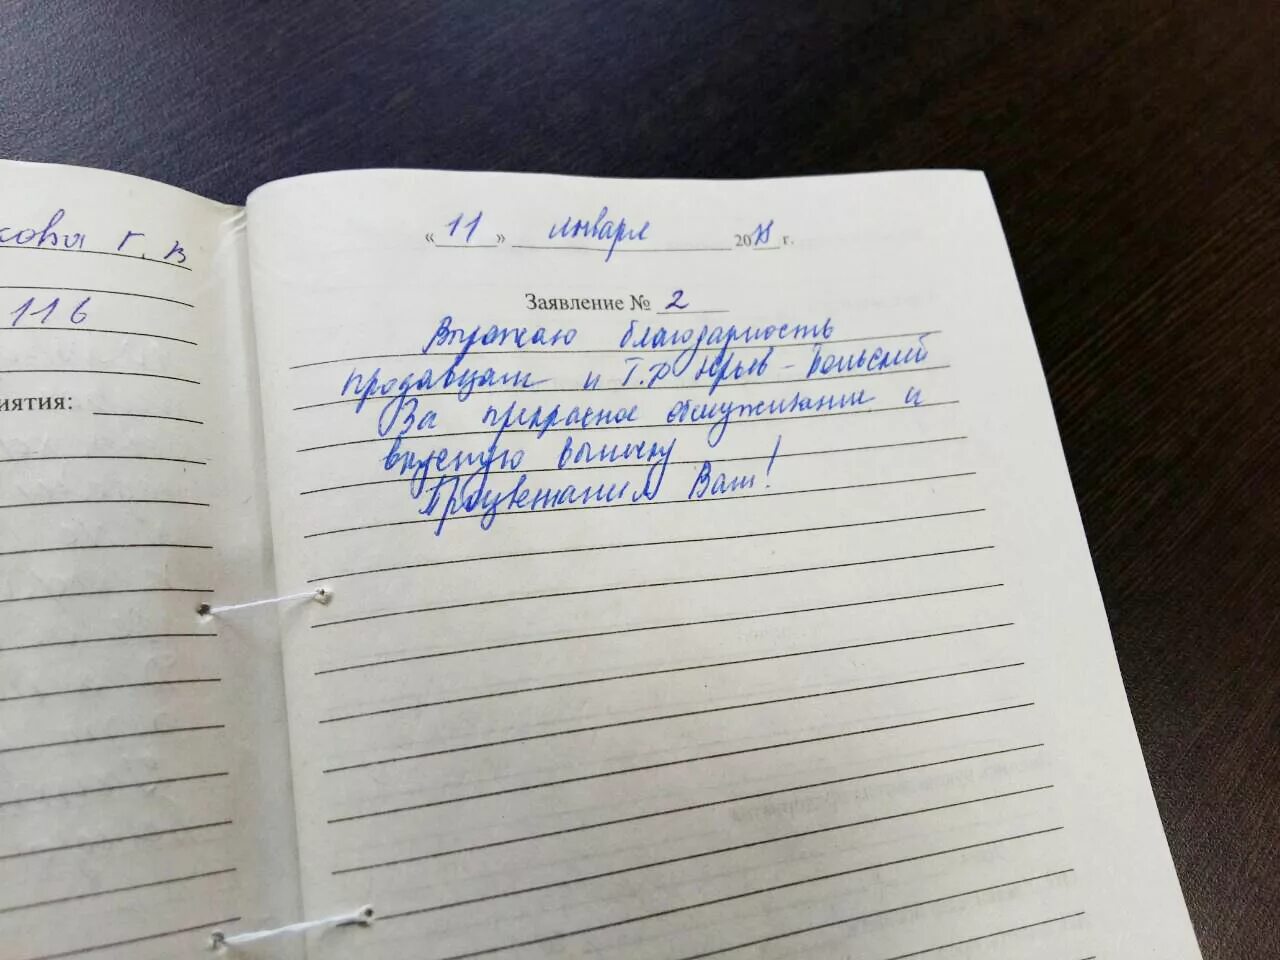 кова Г. В
116
иятия:
«11» января 2018 г.
Заявление № 2
Выражаю благодарность
продавцам и Т.Ф Юрьев-Польский
За прекрасное обслуживание и
вкусную выпечку
Процветания Вам!